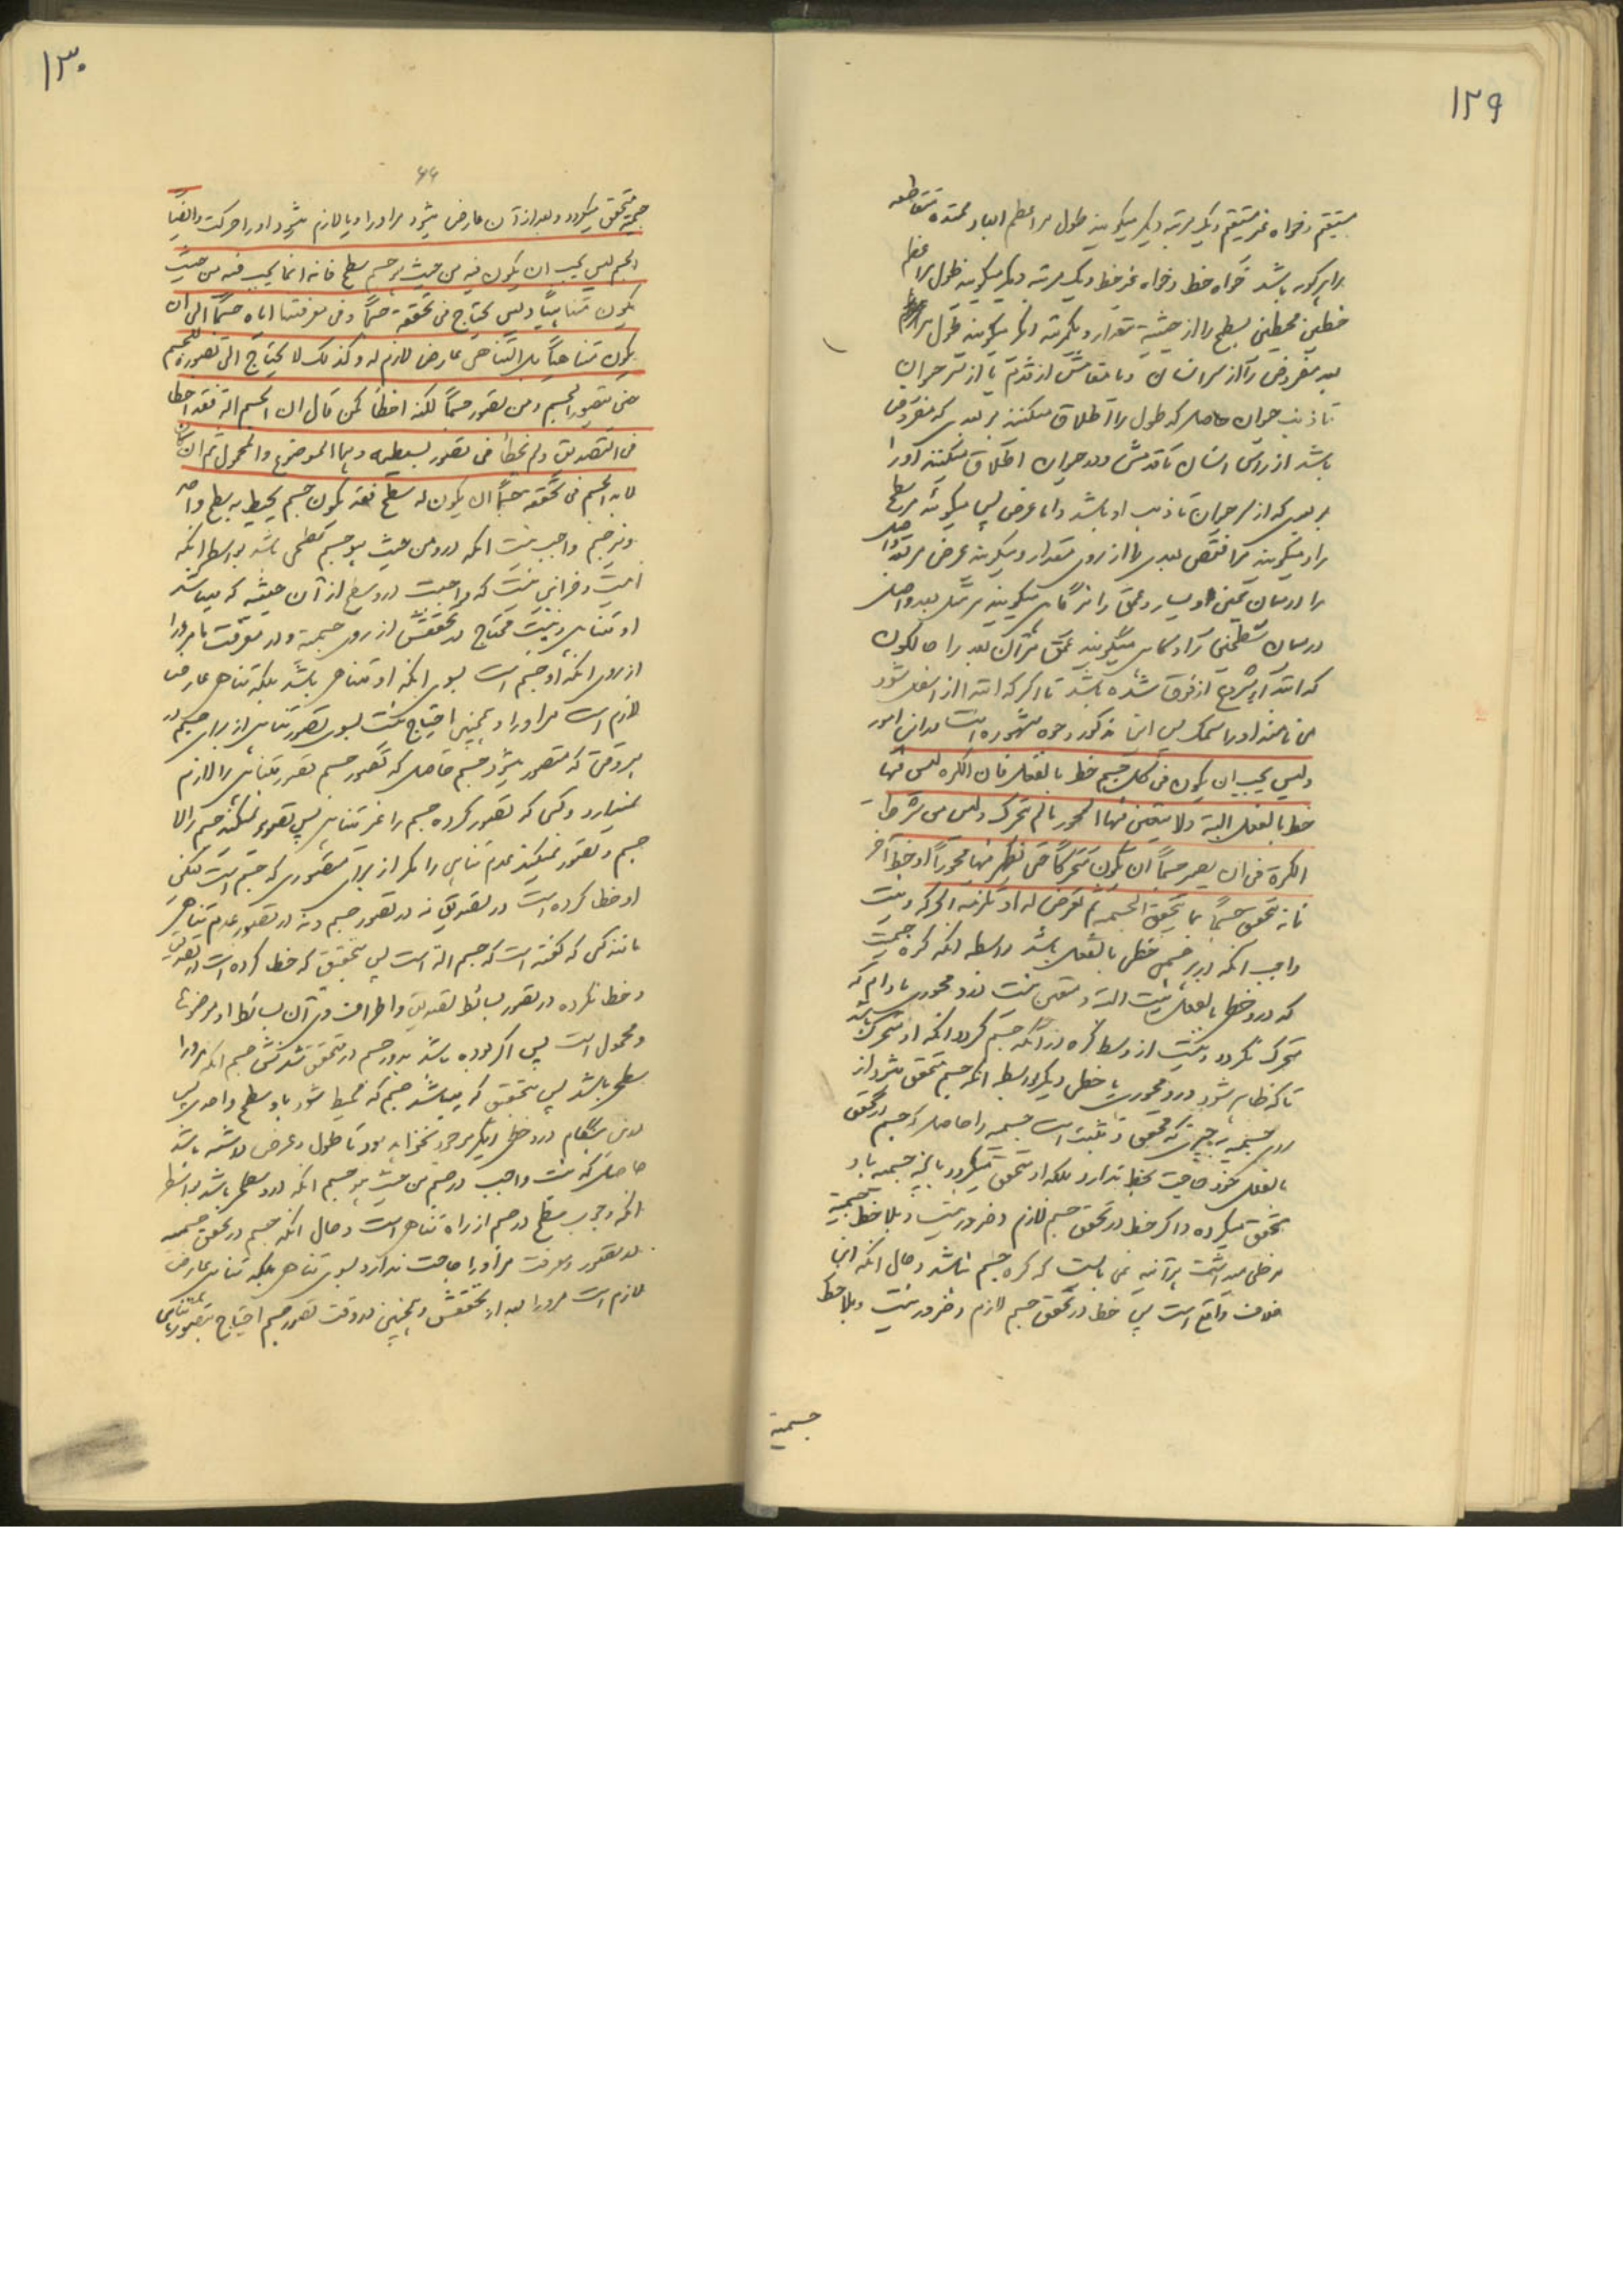 ١٢٩
مستقیم و خواه غیر مستقیم و یک مرتبه دیگر میگویند طول مر اعظم ابعاد ممتده متقاطعه
باشد خواه خط و خواه غیر خط و یک مرتبه دیگر میگویند طول مر
خطین محیطین بسطح را از حیثیة مقدار و یکمرتبه دیگر میگویند طول
بعد مفروض را از سر انسان و تا از قدم یا از سر حیوان
تا ذنب حیوان حاصل که طول را اطلاق میکنند بر بعدی که مفروض
باشد از راس انسان تا قدمش و در حیوان اطلاق میکنند او را
بر بعدی که از سر حیوان تا ذنب او باشد و اما عرض پس میگویند مر سطح
را و میگویند مر انقص بعدی را از روی مقدار و میگویند عرض مر بعد واصل
را در میان یمین و یسار و عمق را نیز گاهی میگویند مر مثل بعد واصل
در میان سطحین را و گاهی میگویند عمق مر آن بعد را حالکون
که ابتداء از فوق شده باشد تا اگر که ابتدا از اسفل شود
می نامند او را سمک پس این مذکور وجوه مشهوره است
ولیس یجب ان یکون فی کل جسم خط بالفعل فان الکره لیس فیها
خط بالفعل البتة ولا یتعین فیها المحور ما لم تتحرک ولیس من شرط
الکرة فی ان یصیر جسماً ان یکون متحرکاً حتی یظهر فیها محوراً او خط آخر
فانه تتحقق جسماً بما یحقق الجسمیه ثم تعرض له او تلزمه الحرکه و نیست
واجب آنکه در هر جسمی خطی بالفعل باشد بواسطه آنکه کره جسمیست
که در او خط بالفعل نیست البته و متعین نیست در او محوری مادام که
متحرک نگردد و نیست از شرط کره در آنکه جسم گردد آنکه او متحرک باشد
تا که ظاهر شود در او محوری یا خطی دیگر بواسطه آنکه جسم متحقق میشود از
روی جسمیه به چیزی که محقق و مثبت است جسمیه را حاصل که جسم در تحقق
بالفعل خود حاجت بخط ندارد بلکه او متحقق میگردد بآنچه جسمیه باو
تحقق میگردد و اگر خط در تحقق جسم لازم و ضرور نیست و بملاحظه جسمیة
هر آینه نمی بایست که کره جسم باشد و حال آنکه این
خلاف واقع است پس خط در تحقق جسم لازم و ضرور نیست و بملاحظه
جسمیة
١٣٠
۶۶
جسمیة متحقق میگردد و بعد از آن عارض میشود مر او را و یا لازم میشود او را حرکت وایضاً
الجسم لیس یجب ان یکون فیه من حیث هو جسم سطح فانه انما یجب فیه من حیث
یکون متناهیاً ولیس یحتاج فی تحققه جسماً وفی معرفتنا ایاه جسماً الی ان
یکون متناهیاً بل التناهی عارض لازم له وکذلک لا یحتاج الی تصوره للجسم
حتی یتصور الجسم ومن تصور جسماً لکنه اخطأ کمن قال ان الجسم آلة فقد اخطا
فی التصدیق ولم یخطأ فی تصور بسیطیه وهما الموضوع والمحمول ثم ان کان
لابد للجسم فی تحققه جسماً ان یکون له سطح فقد یکون جسم یحیط به سطح واحد
و نیز جسم واجب نیست آنکه در او من حیث هو جسم سطحی باشد بواسطه آنکه
اینست و جز این نیست که واجبست در او سطح از آن حیثیة که میباشد
او متناهی و نیست محتاج در تحققش از روی جسمیة و در معرفت ما مر او را
از روی آنکه او جسم است بسوی آنکه او متناهی باشد بلکه تناهی عارض
لازم است مر او را و همچنین احتیاج نیست بسوی تصور تناهی از برای جسم در
هر وقتی که متصور میشود جسم حاصل که تصور جسم تصور تناهی را لازم
نمیدارد و کسی که تصور کرده جسم را غیر متناهی پس تصور نمیکند جسم را لا
جسم و تصور نمیکند عدم تناهی را مگر از برای متصوری که جسم است لیکن
او خطا کرده است در تصدیق نه در تصور جسم و نه در تصور عدم تناهی
مانند کسی که گفته است که جسم آلة است پس بتحقیق که خطا کرده است در تصدیق
و خطا نکرده در تصور بسائط تصدیق و اطراف و آن بسائط او موضوع
و محمول است پس اگر بوده باشد بد ور جسم در متحقق شدنش جسم آنکه مر او را
سطحی باشد پس بتحقیق که میباشد جسم که محیط شود باو سطح واحد پس
در این هنگام در او خطی دیگر موجود نخواهد بود تا طول و عرض داشته باشد
حاصل که نیست واجب در جسم من حیث هو جسم آنکه در او سطحی باشد بواسطه
آنکه وجوب سطح در جسم از راه تناهی است و حال آنکه جسم در تحقق جسمیه
در تصور و معرفت مر او را حاجت ندارد بسوی تناهی بلکه تناهی عارض
لازم است مر او را بعد از تحققش و همچنین در وقت تصور جسم احتیاج بتصور تناهی